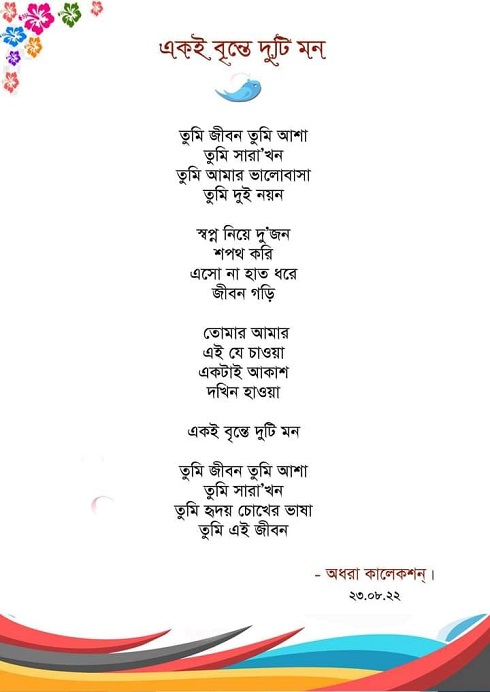 একই বৃন্তে দুটি মন
তুমি জীবন তুমি আশা
তুমি সারা'খন
তুমি আমার ভালোবাসা
তুমি দুই নয়ন
স্বপ্ন নিয়ে দু'জন
শপথ করি
এসো না হাত ধরে
জীবন গড়ি
তোমার আমার
এই যে চাওয়া
একটাই আকাশ
দখিন হাওয়া
একই বৃন্তে দুটি মন
তুমি জীবন তুমি আশা
তুমি সারা'খন
তুমি হৃদয় চোখের ভাষা
তুমি এই জীবন
- অধরা কালেকশন্।
২৩.০৮.২২